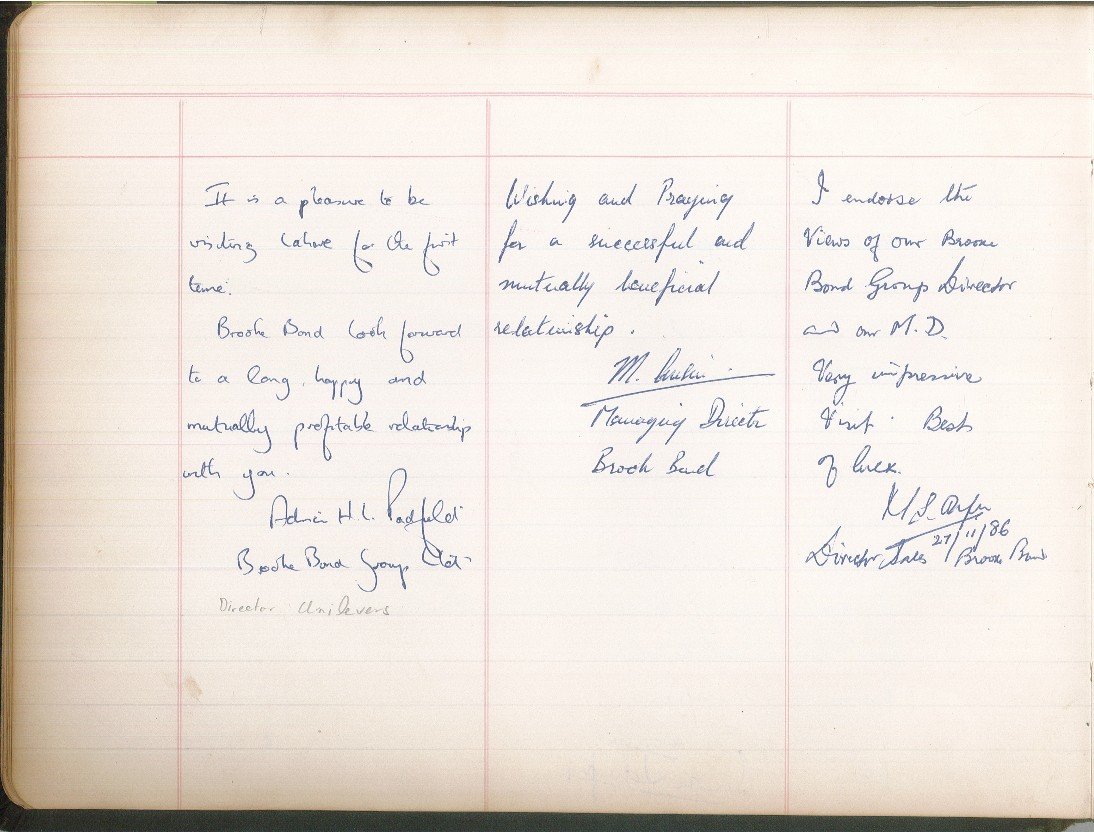 It is a pleasure to be
visiting Lahore for the first
time.
Brooke Bond look forward
to a long, happy and
mutually profitable relationship
with you.
Adrian H.L. Padfield
Brooke Bond Group
Director Unilevers
Wishing and Praying
for a successful and
mutually beneficial
relationship.
M.
Managing Director
Brook Bond
I endorse the
Views of our Brooke
Bond Group Director
and our M.D.
Very impressive
Visit. Best
of luck.
27/11/86
Director Sales Brooke Bond